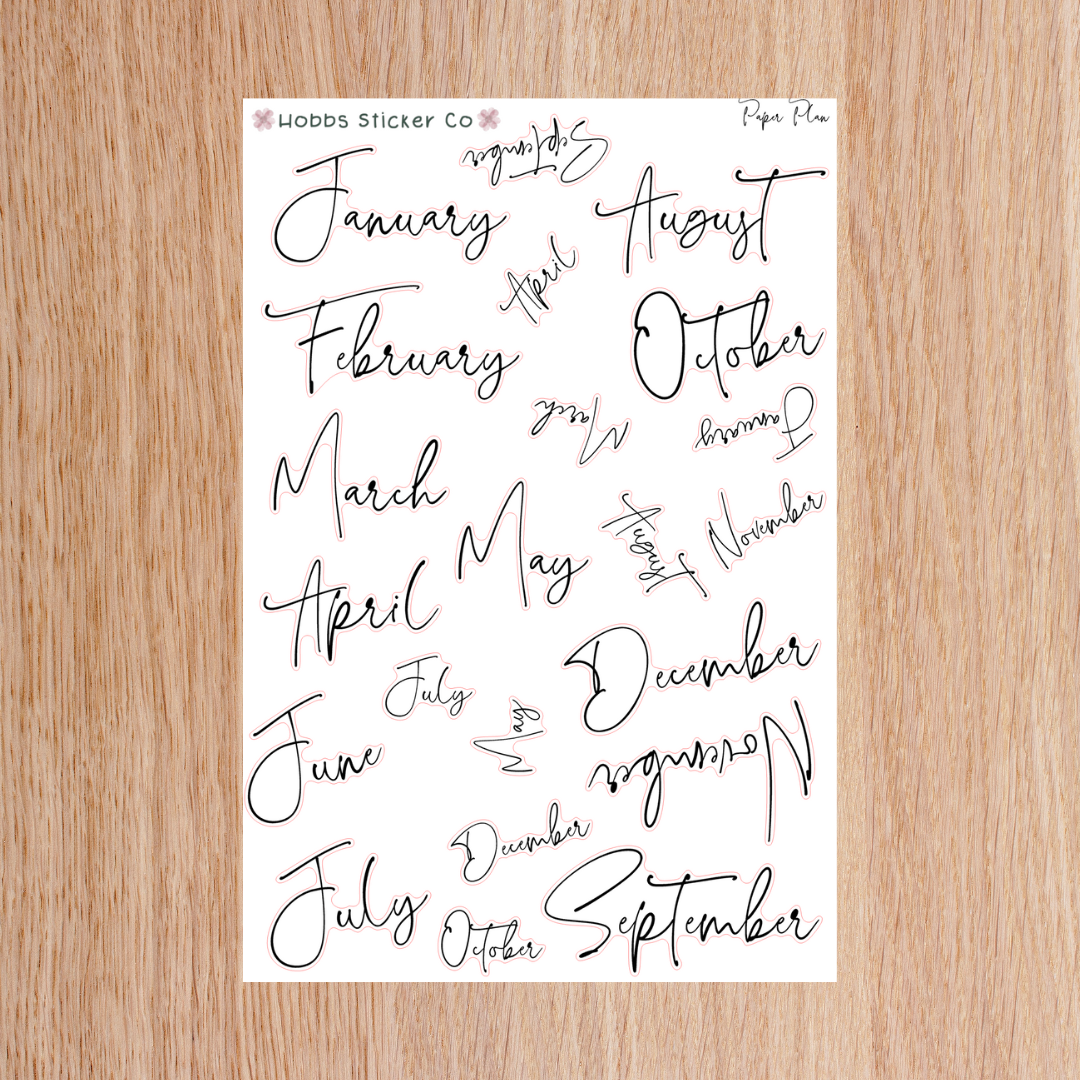 Hobbs Sticker Co
Paper Plan
September
January
August
April
February
October
March
January
March
May
August
November
April
December
July
May
June
November
December
July
October
September